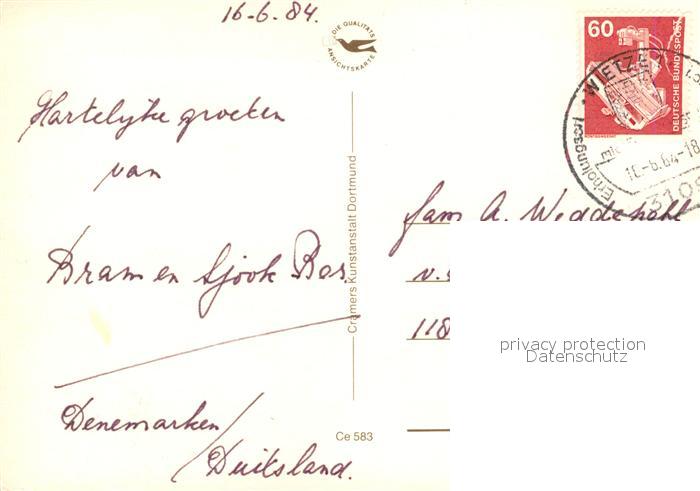 16-6.84.
DIE QUALITÄTS
ANSICHTSKARTE
60
DEUTSCHE BUNDESPOST
WIETZE
Erholungsort
16.-6.84-18
3109
Hartelijke groeten
van
Bram en Sjook Bos.
Denemarken/
Duitsland.
Cramers Kunstanstalt Dortmund
Ce 583
fam A. Weddepohl
v.
118
privacy protection
Datenschutz